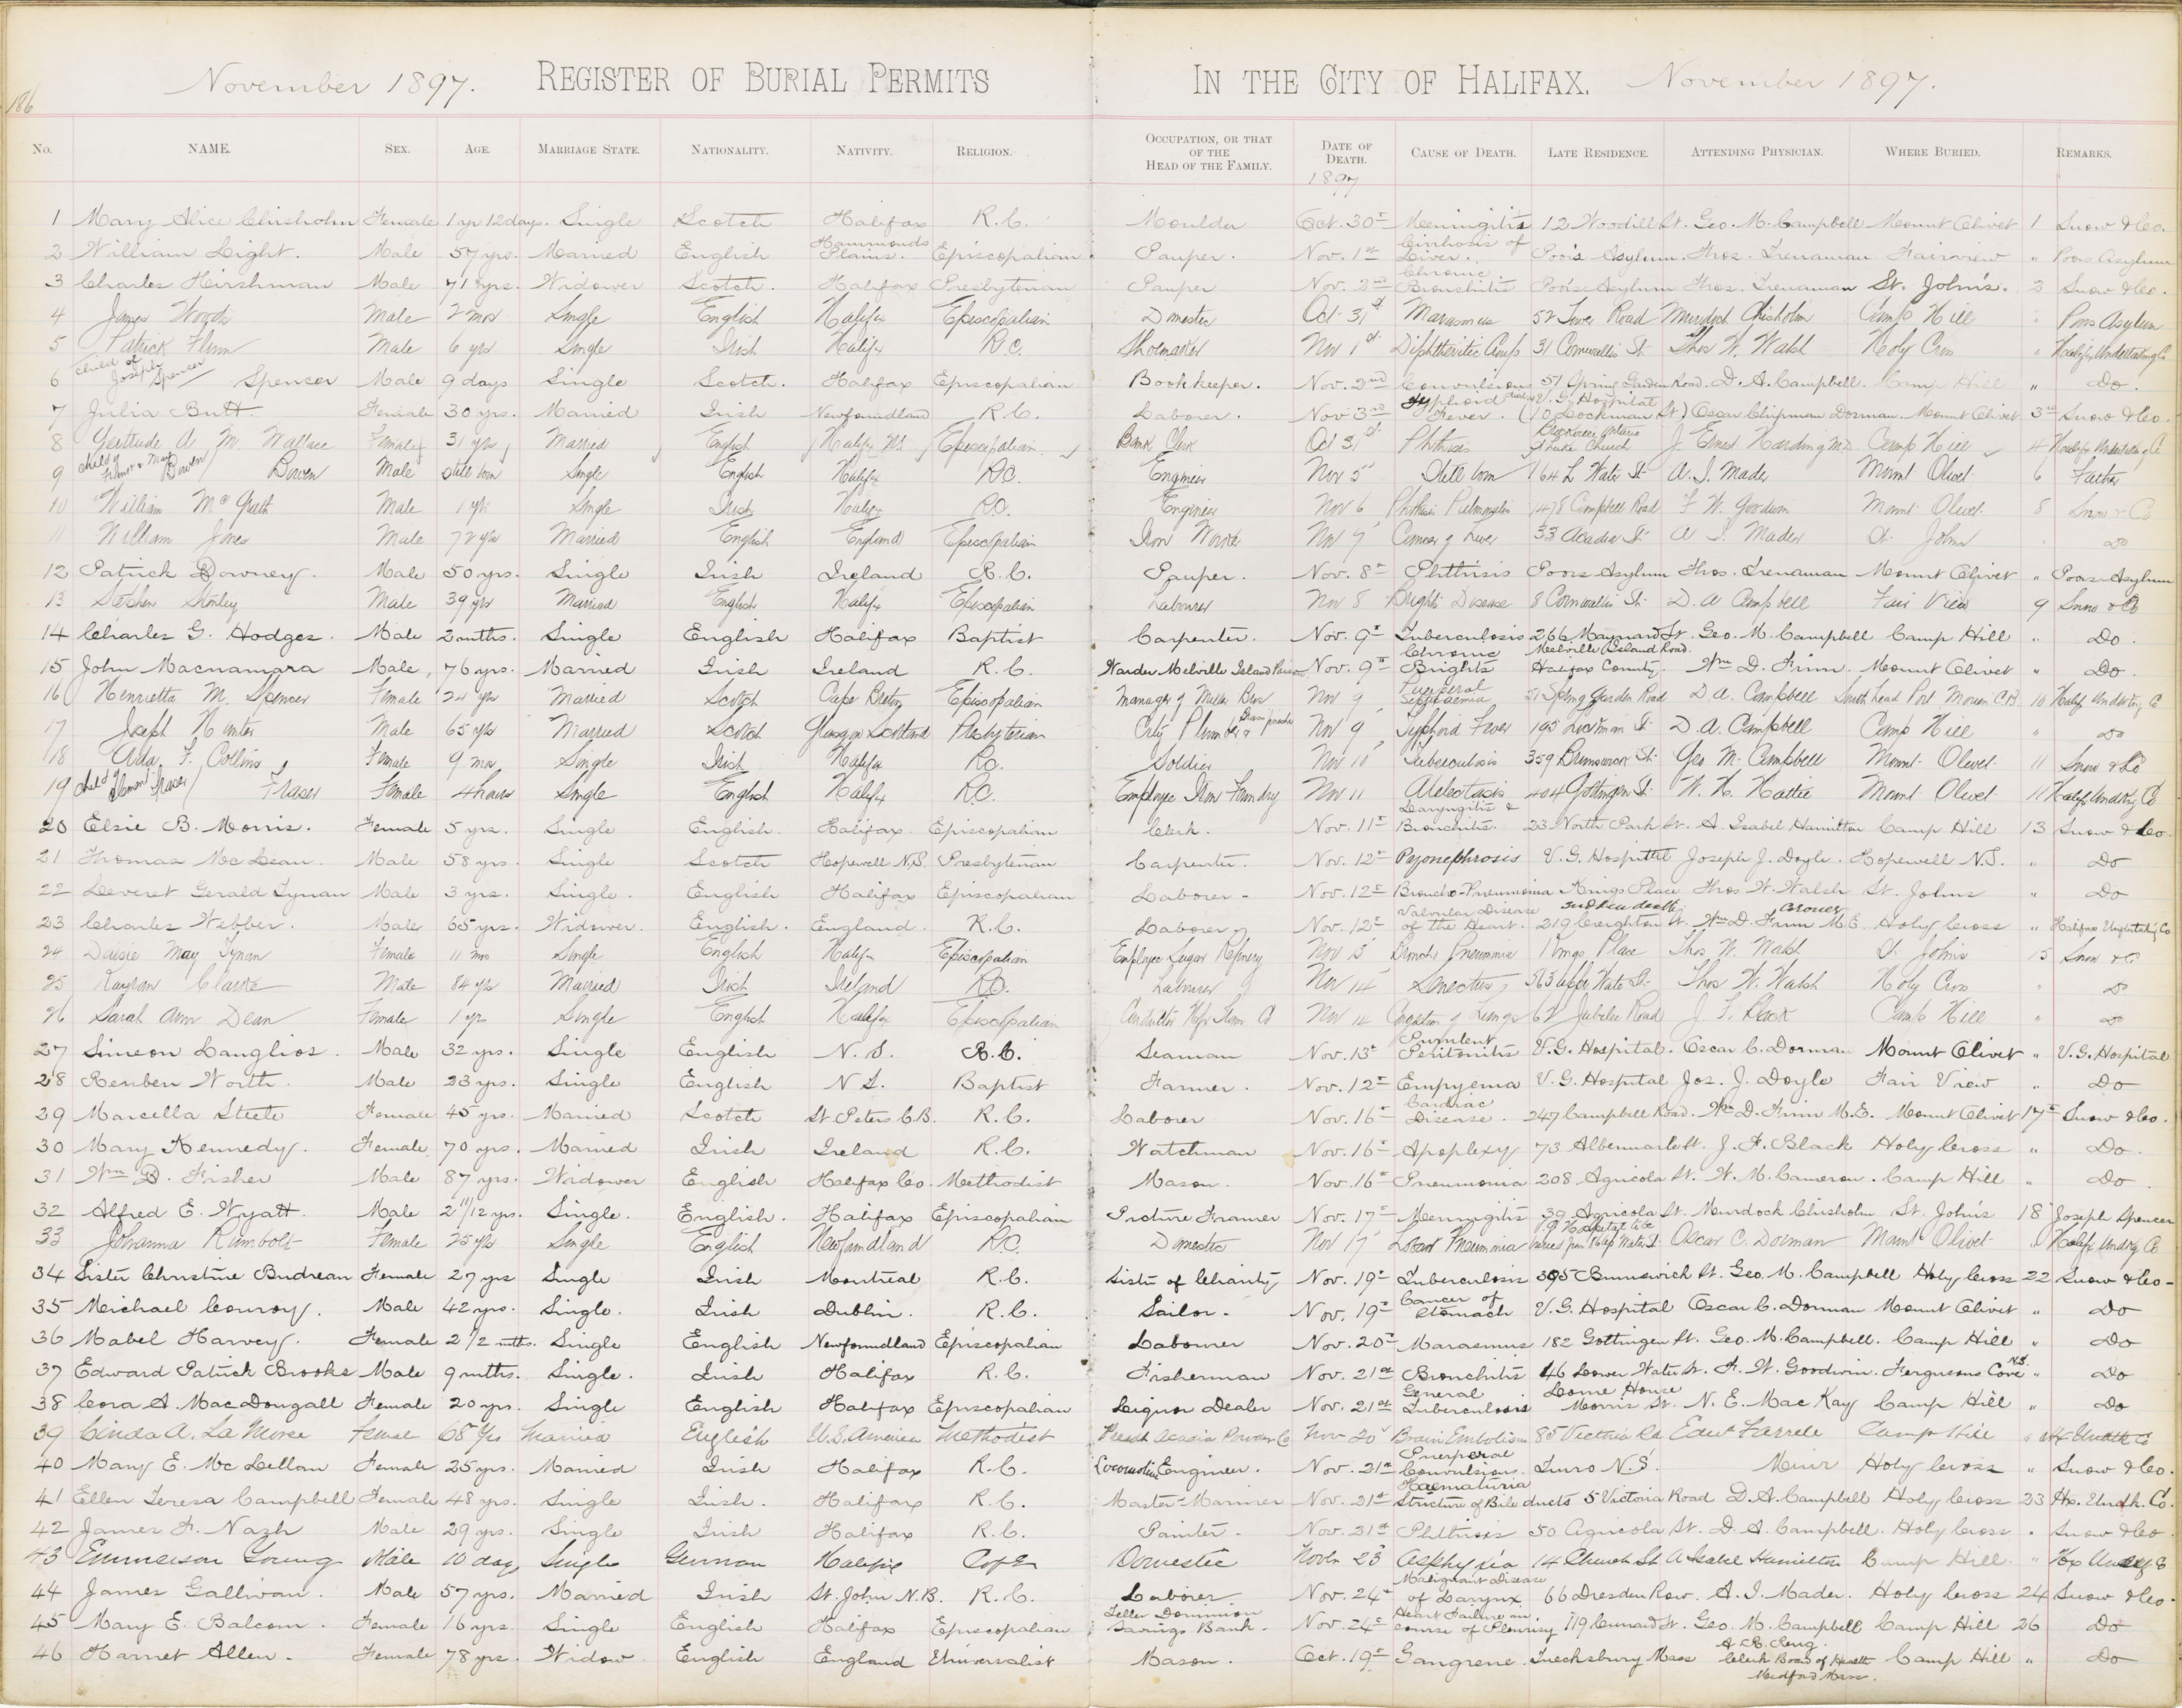 186
November 1897. REGISTER OF BURIAL PERMITS IN THE CITY OF HALIFAX. November 1897.
No. NAME. SEX. AGE. MARRIAGE STATE. NATIONALITY. NATIVITY. RELIGION. OCCUPATION, OR THAT OF THE HEAD OF THE FAMILY. DATE OF DEATH. CAUSE OF DEATH. LATE RESIDENCE. ATTENDING PHYSICIAN. WHERE BURIED. REMARKS.
1897
1 Mary Alice Chisholm Female 1 yr 12 days. Single Scotch Halifax R.C. Moulder Oct. 30th Meningitis 12 Woodill St. Geo. M. Campbell Mount Olivet 1 Snow & Co.
2 William Light. Male 57 yrs. Married English Hammonds Plains. Episcopalian Pauper. Nov. 1st Cirrhosis of Liver. Poor's Asylum. Thos. Trenaman Fairview " Poors Asylum
3 Charles Hirshman Male 71 yrs. Widower Scotch. Halifax Presbyterian Pauper Nov. 2nd Chronic Bronchitis Poors Asylum Thos. Trenaman St. John's. 2 Snow & Co.
4 James Wood Male 2 mos Single English Halifx Episcopalian Domestic Oct 31st Marasmus 52 Tower Road Murdoch Chisholm Camp Hill " Poors Asylum
5 Patrick Flinn Male 6 yrs Single Irish Halifx R.C. Shoemaker Nov 1st Diphtheritic Croup 31 Cornwallis St. Thos W. Walsh Holy Cross " Halifx Undertaking Co
6 Child of Joseph Spencer Spencer Male 9 days Single Scotch. Halifax Episcopalian Bookkeeper. Nov. 2nd Convulsions 57 Spring Garden Road. D. A. Campbell. Camp Hill " Do.
7 Julia Butt Female 30 yrs. Married Irish Newfoundland R.C. Laborer. Nov 3rd Typhoid Fever. V. G. Hospital (10 Lockman St) Oscar Chipman Dorman. Mount Olivet 3rd Snow & Co.
8 Gertrude A M. Wallace Female 31 yrs Married English Halifx NS Episcopalian Bank Clerk Oct 31st Phthisis Brockville Ontario St Luke Church J. Ernest Harding M.D. Camp Hill 4 Halifx Undertaking Co
9 Child of Bowen Bowen Male Still born Single English Halifx R.C. Engineer Nov 5 Still born 164 L Water St. A. I. Mader Mount Olivet 6 Father
10 William McGrath Male 1 yr. Single Irish Halifx R.C. Engineer Nov 6 Phthisis Pulmonalis Campbell Road F W. Goodwin Mount Olivet 8 Snow & Co
11 William Jones Male 72 yrs Married English England Episcopalian Iron Worker Nov 7 Cancer of Liver 33 Acadia St. A I. Mader St. John " do
12 Patrick Downey. Male 50 yrs. Single Irish Ireland R.C. Pauper. Nov. 8th Phthisis Poors Asylum Thos. Trenaman Mount Olivet " Poors Asylum
13 Stephen Stanley Male 39 yrs Married English Halifx Episcopalian Labourer Nov 8 Brights Disease 8 Cornwallis St. D. A Campbell Fair View 9 Snow & Co
14 Charles G. Hodges. Male 2 mths. Single English Halifax Baptist Carpenter. Nov. 9th Tuberculosis 266 Maynard St. Geo. M. Campbell Camp Hill " Do.
15 John Macnamara Male 76 yrs. Married Irish Ireland R.C. Warder Melville Island Prison. Nov. 9th Chronic Brights Melville Island Road. Halifax County. Wm D. Finn. Mount Olivet " Do.
16 Henrietta M. Spencer Female 24 yrs Married Scotch Cape Breton Episcopalian Manager of Nov 9 Puerperal Septicaemia 57 Spring Garden Road D A. Campbell South Head Port Morien C.B. 10 Halifx Undertkg Co
17 Joseph Hunter Male 65 yrs Married Scotch Glasgow Scotland Presbyterian City Plumber Nov 9 Typhoid Fever 195 Lockman St. D. A. Campbell Camp Hill " do
18 Ada F. Collins Female 9 mos Single Irish Halifx R.C. Soldier Nov 10 Tuberculosis 359 Brunswick St. Geo M. Campbell Mount Olivet 11 Snow & Co
19 Child of Fraser Fraser Female 4 hours Single English Halifx R.C. Employe Iron Foundry Nov 11 Atelectasis 404 Gottingen St. W. H. Hattie Mount Olivet 11 Halifx Undertkg Co
20 Elsie B. Morris. Female 5 yrs. Single English. Halifax. Episcopalian Clerk. Nov. 11th Laryngitis & Bronchitis. 23 North Park St. A. Isabel Hamilton Camp Hill 13 Snow & Co.
21 Thomas McLean. Male 58 yrs. Single Scotch Hopewell N.S. Presbyterian Carpenter. Nov. 12th Pyonephrosis V. G. Hospital Joseph J. Doyle. Hopewell N.S. " Do
22 Leveret Gerald Tynan Male 3 yrs. Single. English Halifax Episcopalian Laborer - Nov. 12th Broncho-Pneumonia Kings Place Thos W. Walsh St. Johns " Do
23 Charles Webber. Male 65 yrs. Widower. English. England. R.C. Laborer Nov. 12th Valvular Disease of the Heart. Sudden death. 219 Creighton St. Wm D. Finn M.E. Coroner Holy Cross " Halifax Undertaking Co
24 Daisie May Tynan Female 11 mo Single English Halifx Episcopalian Employee Sugar Refinery Nov 13 Broncho Pneumonia Kings Place Thos W. Walsh St. Johns 15 Snow & Co
25 Clarke Male 84 yrs Married Irish Ireland R.C. Labourer Nov 14 Senectus 363 Upper Water St. Thos W. Walsh Holy Cross " do
26 Sarah Ann Dean Female 1 yr Single English Halifx Episcopalian Conductor Hfx Tram Co Nov 14 Congestion of Lungs 62 Jubilee Road J. F. Black Camp Hill " do
27 Simeon Langlios. Male 32 yrs. Single English N. S. R.C. Seaman Nov. 13th Purulent Peritonitis V. G. Hospital. Oscar C. Dorman Mount Olivet " V. G. Hospital
28 Reuben North. Male 23 yrs. Single English N S. Baptist Farmer. Nov. 12th Empyema V. G. Hospital Jos. J. Doyle Fair View " Do
29 Marcella Steete Female 45 yrs. Married Scotch St Peters C.B. R.C. Laborer Nov. 16th Cardiac Disease. 247 Campbell Road. Wm D. Finn M.E. Mount Olivet 17th Snow & Co.
30 Mary Kennedy. Female 70 yrs. Married Irish Ireland R.C. Watchman Nov. 16th Apoplexy 73 Albermarle St. J. F. Black Holy Cross " Do.
31 Wm D. Fisher Male 87 yrs. Widower English Halifax Co. Methodist Mason. Nov. 16th Pneumonia 208 Agricola St. W. M. Cameron. Camp Hill " Do
32 Alfred E. Wyatt. Male 2 11/12 yrs. Single. English. Halifax Episcopalian Picture Framer Nov. 17th Meningitis 39 Agricola St. Murdock Chisholm St. John's 18 Joseph Spencer
33 Johanna Rumbolt Female 25 yrs Single English Newfoundland R.C. Domestic Nov 17 Lobar Pneumonia V G Hospital Oscar C. Dorman Mount Olivet " Halifx Undtkg Co
34 Sister Christine Budreau Female 27 yrs Single Irish Montreal R.C. Sister of Charity Nov. 19th Tuberculosis 395 Brunswick St. Geo. M. Campbell Holy Cross 22 Snow & Co-
35 Meichael Conroy. Male 42 yrs. Single. Irish Dublin. R.C. Sailor - Nov. 19th Cancer of Stomach V. G. Hospital Oscar C. Dorman Mount Olivet " Do
36 Mabel Harvey. Female 2 1/2 mths. Single English Newfoundland Episcopalian Labourer Nov. 20th Marasmus 182 Gottingen St. Geo. M. Campbell. Camp Hill " Do
37 Edward Patrick Brooks Male 9 mths. Single. Irish Halifax R.C. Fisherman Nov. 21st Bronchitis 46 Lower Water St. F. W. Goodwin. Fergusons Cove N.S. " Do
38 Cora A. MacDougall Female 20 yrs. Single English Halifax Episcopalian Liquor Dealer Nov. 21st General Tuberculosis Lorne House Morris St. N. E. MacKay Camp Hill " Do
39 Cinda A. La Morse Female 68 Yrs Married English U.S. America Methodist Presdt Acadia Powder Co Nov 20 Brain Embolism 85 Victoria Rd Edwd Farrell Camp Hill "
40 Mary E. McLellan Female 25 yrs. Married Irish Halifax R.C. Locomotive Engineer. Nov. 21st Puerperal Convulsions. Truro N.S. Muir Holy Cross " Snow & Co.
41 Ellen Teresa Campbell Female 48 yrs. Single Irish. Halifax R.C. Master-Mariner Nov. 21st Haematuria Stricture of Bile ducts 5 Victoria Road D. A. Campbell Holy Cross 23 Hx. Undtk. Co.
42 James F. Nash Male 29 yrs. Single Irish Halifax R.C. Painter - Nov. 21st Phthisis 50 Agricola St. D. A. Campbell. Holy Cross " Snow & Co
43 Emmerson Young Male 10 days Single German Halifax C of E Domestic Novbr 23 Asphyxia 14 Church St A Isabel Hamilton Camp Hill "
44 James Gallivan. Male 57 yrs. Married Irish St. John N.B. R.C. Laborer Nov. 24th Malignant Disease of Larynx 66 Dresden Row. A. I. Mader. Holy Cross 24 Snow & Co-
45 Mary E. Balcom. Female 16 yrs. Single English Halifax Episcopalian Teller Dominion Savings Bank. Nov. 24th Heart Failure in course of Pleurisy 119 Cunard St. Geo. M. Campbell Camp Hill 26 Do
46 Harriet Allen. Female 78 yrs. Widow English England Universalist Mason. Oct. 19th Gangrene. Mass Clerk Board of Health Medford Mass. Camp Hill " Do